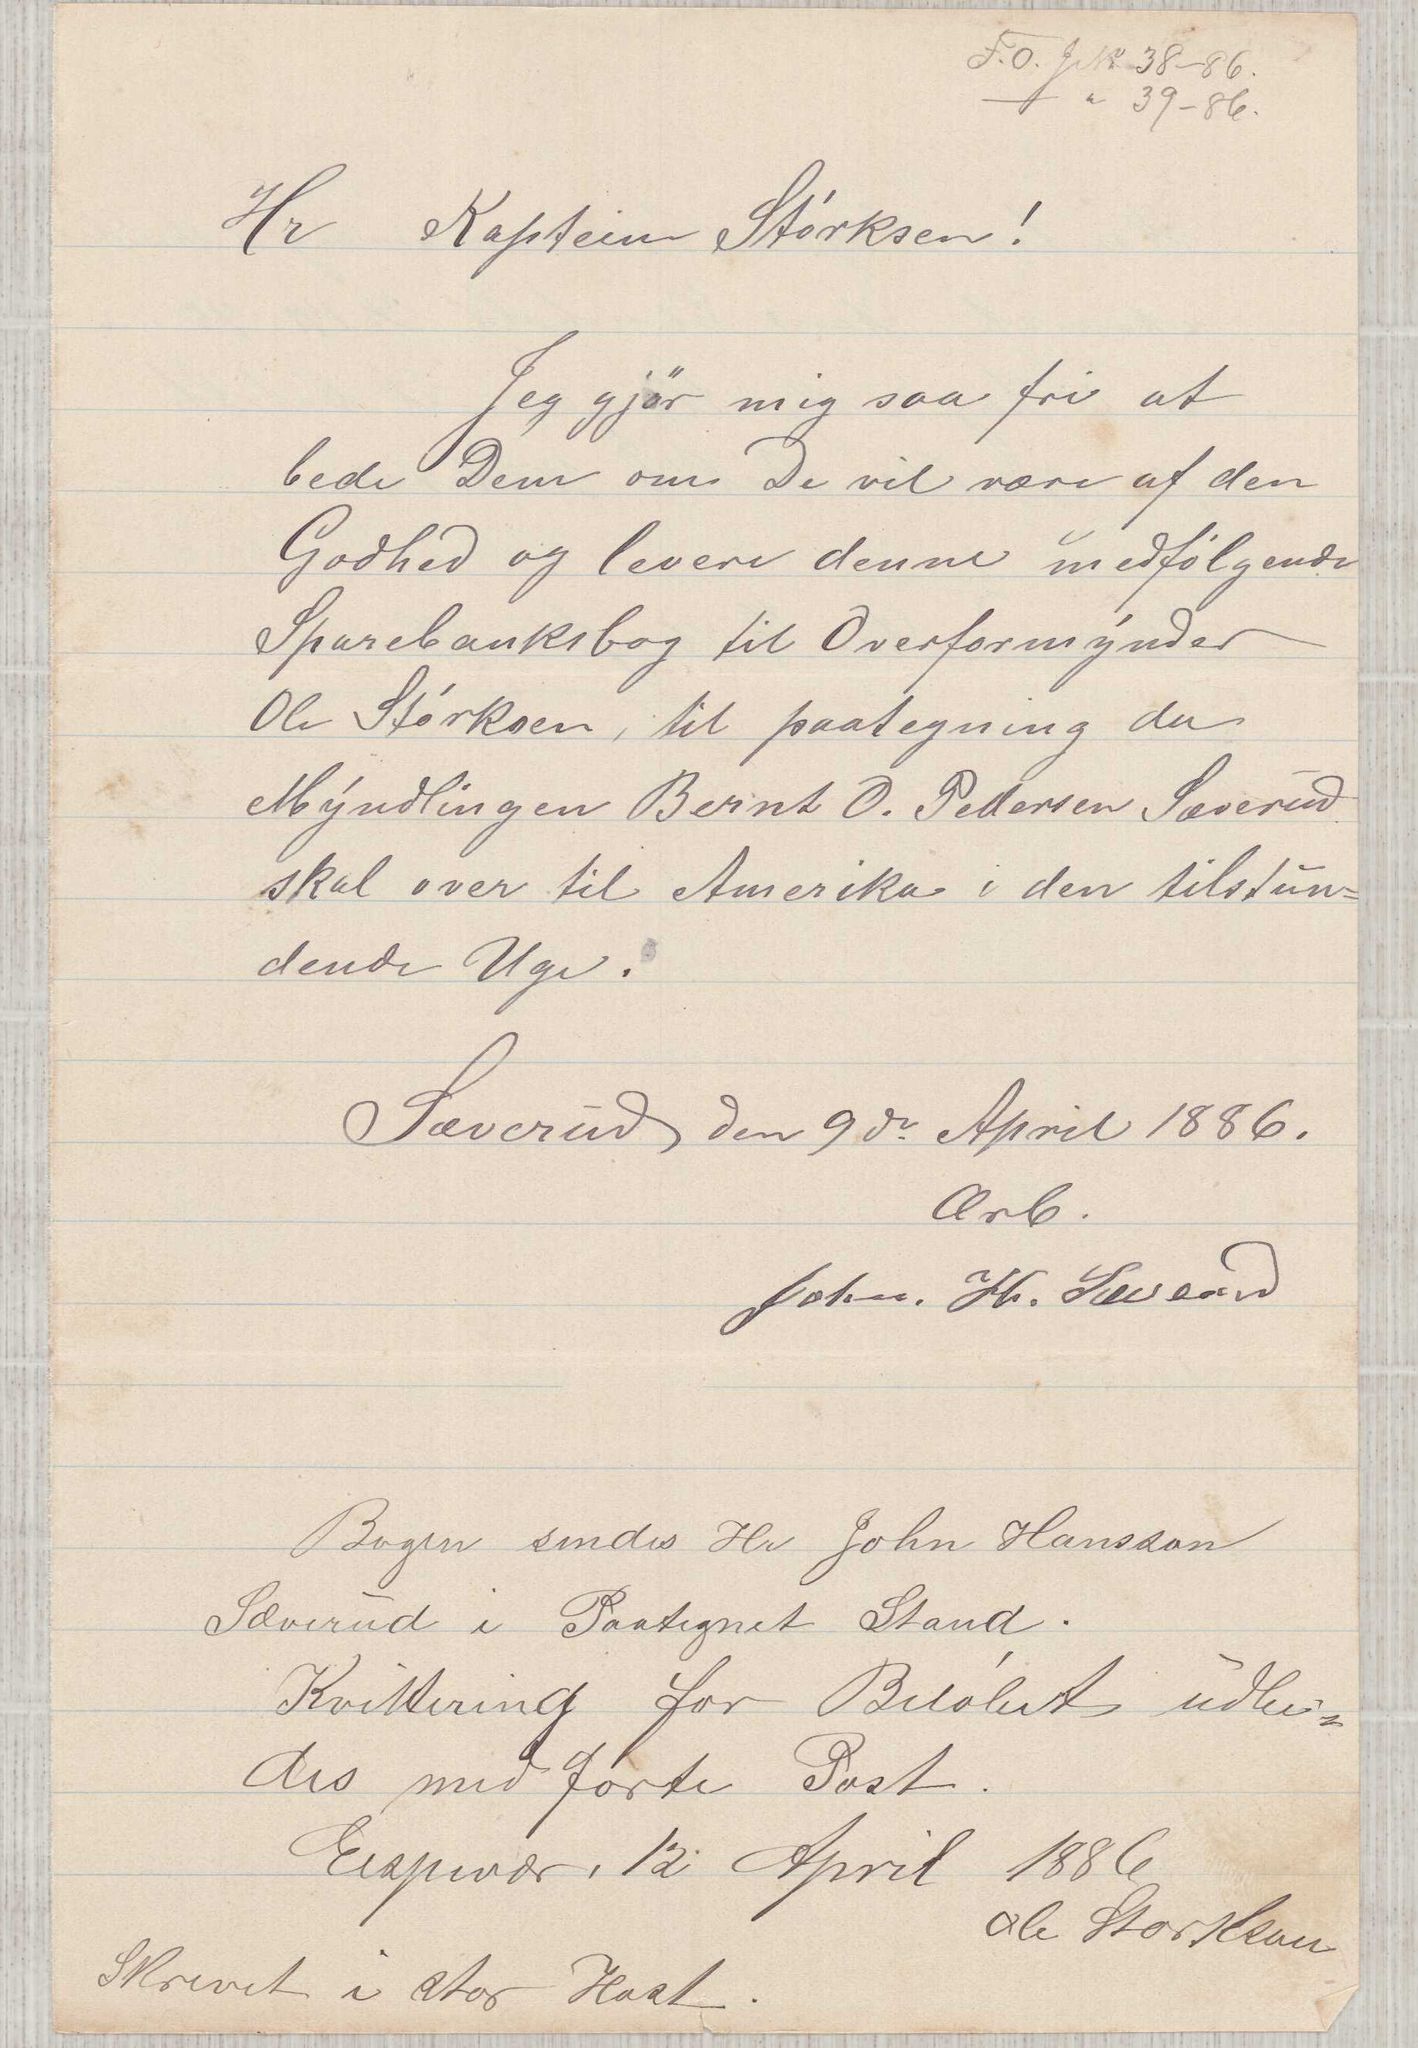 F.O. J.N. 38-86.
" 39-86.
Hr Kaptein Störksen!
Jeg gjör mig saa fri at
bede Dem om De vil være af den
Godhed og levere denne medfölgende
Sparebanksbog til Overformynder
Ole Störksen, til paategning da
Myndlingen Bernt O. Pedersen Sæverud
skal over til Amerika i den tilstun=
dende Uge.
Sæverud, den 9de April 1886.
Ærb.
John. H. Sæverud
Bogen sendes Hr John Hansson
Sæverud i Paategnet Stand.
Kvittering for Belöbet udbe=
des med förte Post.
Espevær, 12 April 1886
Ole Størksen
Skrevet i stor Hast.